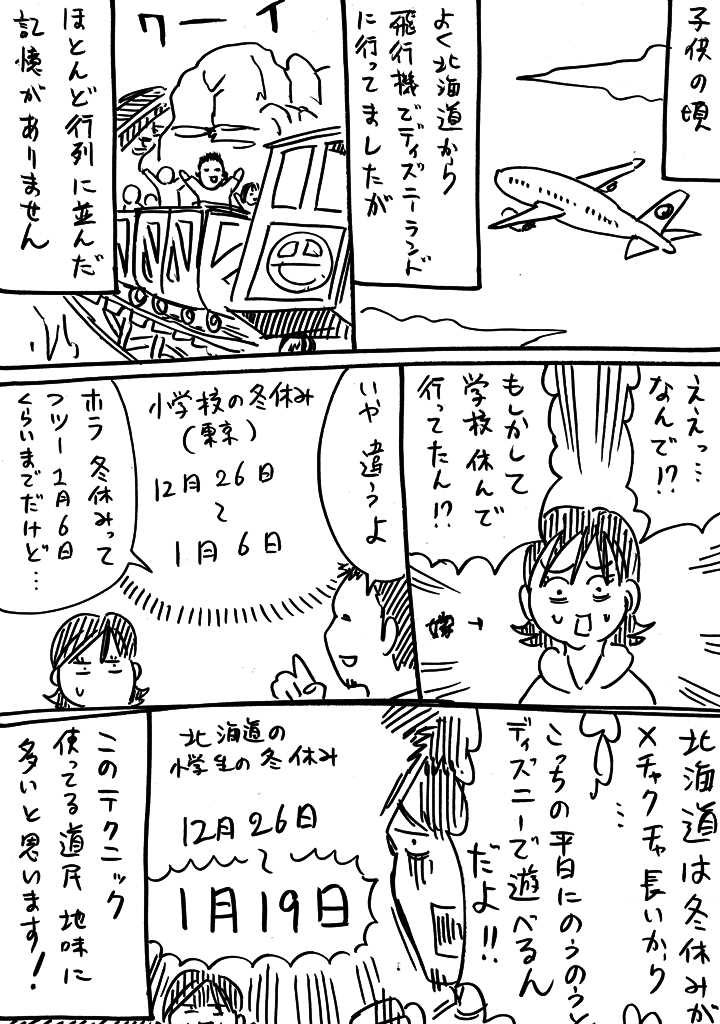 子供の頃
よく北海道から
飛行機でディズニーランド
に行ってましたが
ワーイ
ほとんど行列に並んだ
記憶がありません
ええっ…
なんで!?
もしかして
学校休んで
行ってたん!?
嫁→
いや 違うよ
小学校の冬休み
(東京)
12月26日
〜
1月6日
ホラ 冬休みって
フツー1月6日
くらいまでだけど…
北海道は冬休みが
メチャクチャ長いから
…
こっちの平日にのうのうと
ディズニーで遊べるん
だよ!!
北海道の
小学生の冬休み
12月26日
〜
1月19日
このテクニック
使ってる道民 地味に
多いと思います!